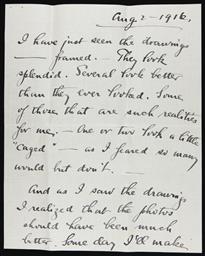 Aug 2 - 1916.
I have just seen the drawings
— framed. — They look
splendid. Several look better
than they ever looked. Some
of those that are such realities
for me. — One or two look a little
"caged" — as I feared so many
would but don't. —
And as I saw the drawings
I realized that the photos
should have been much
better. Some day I'll make